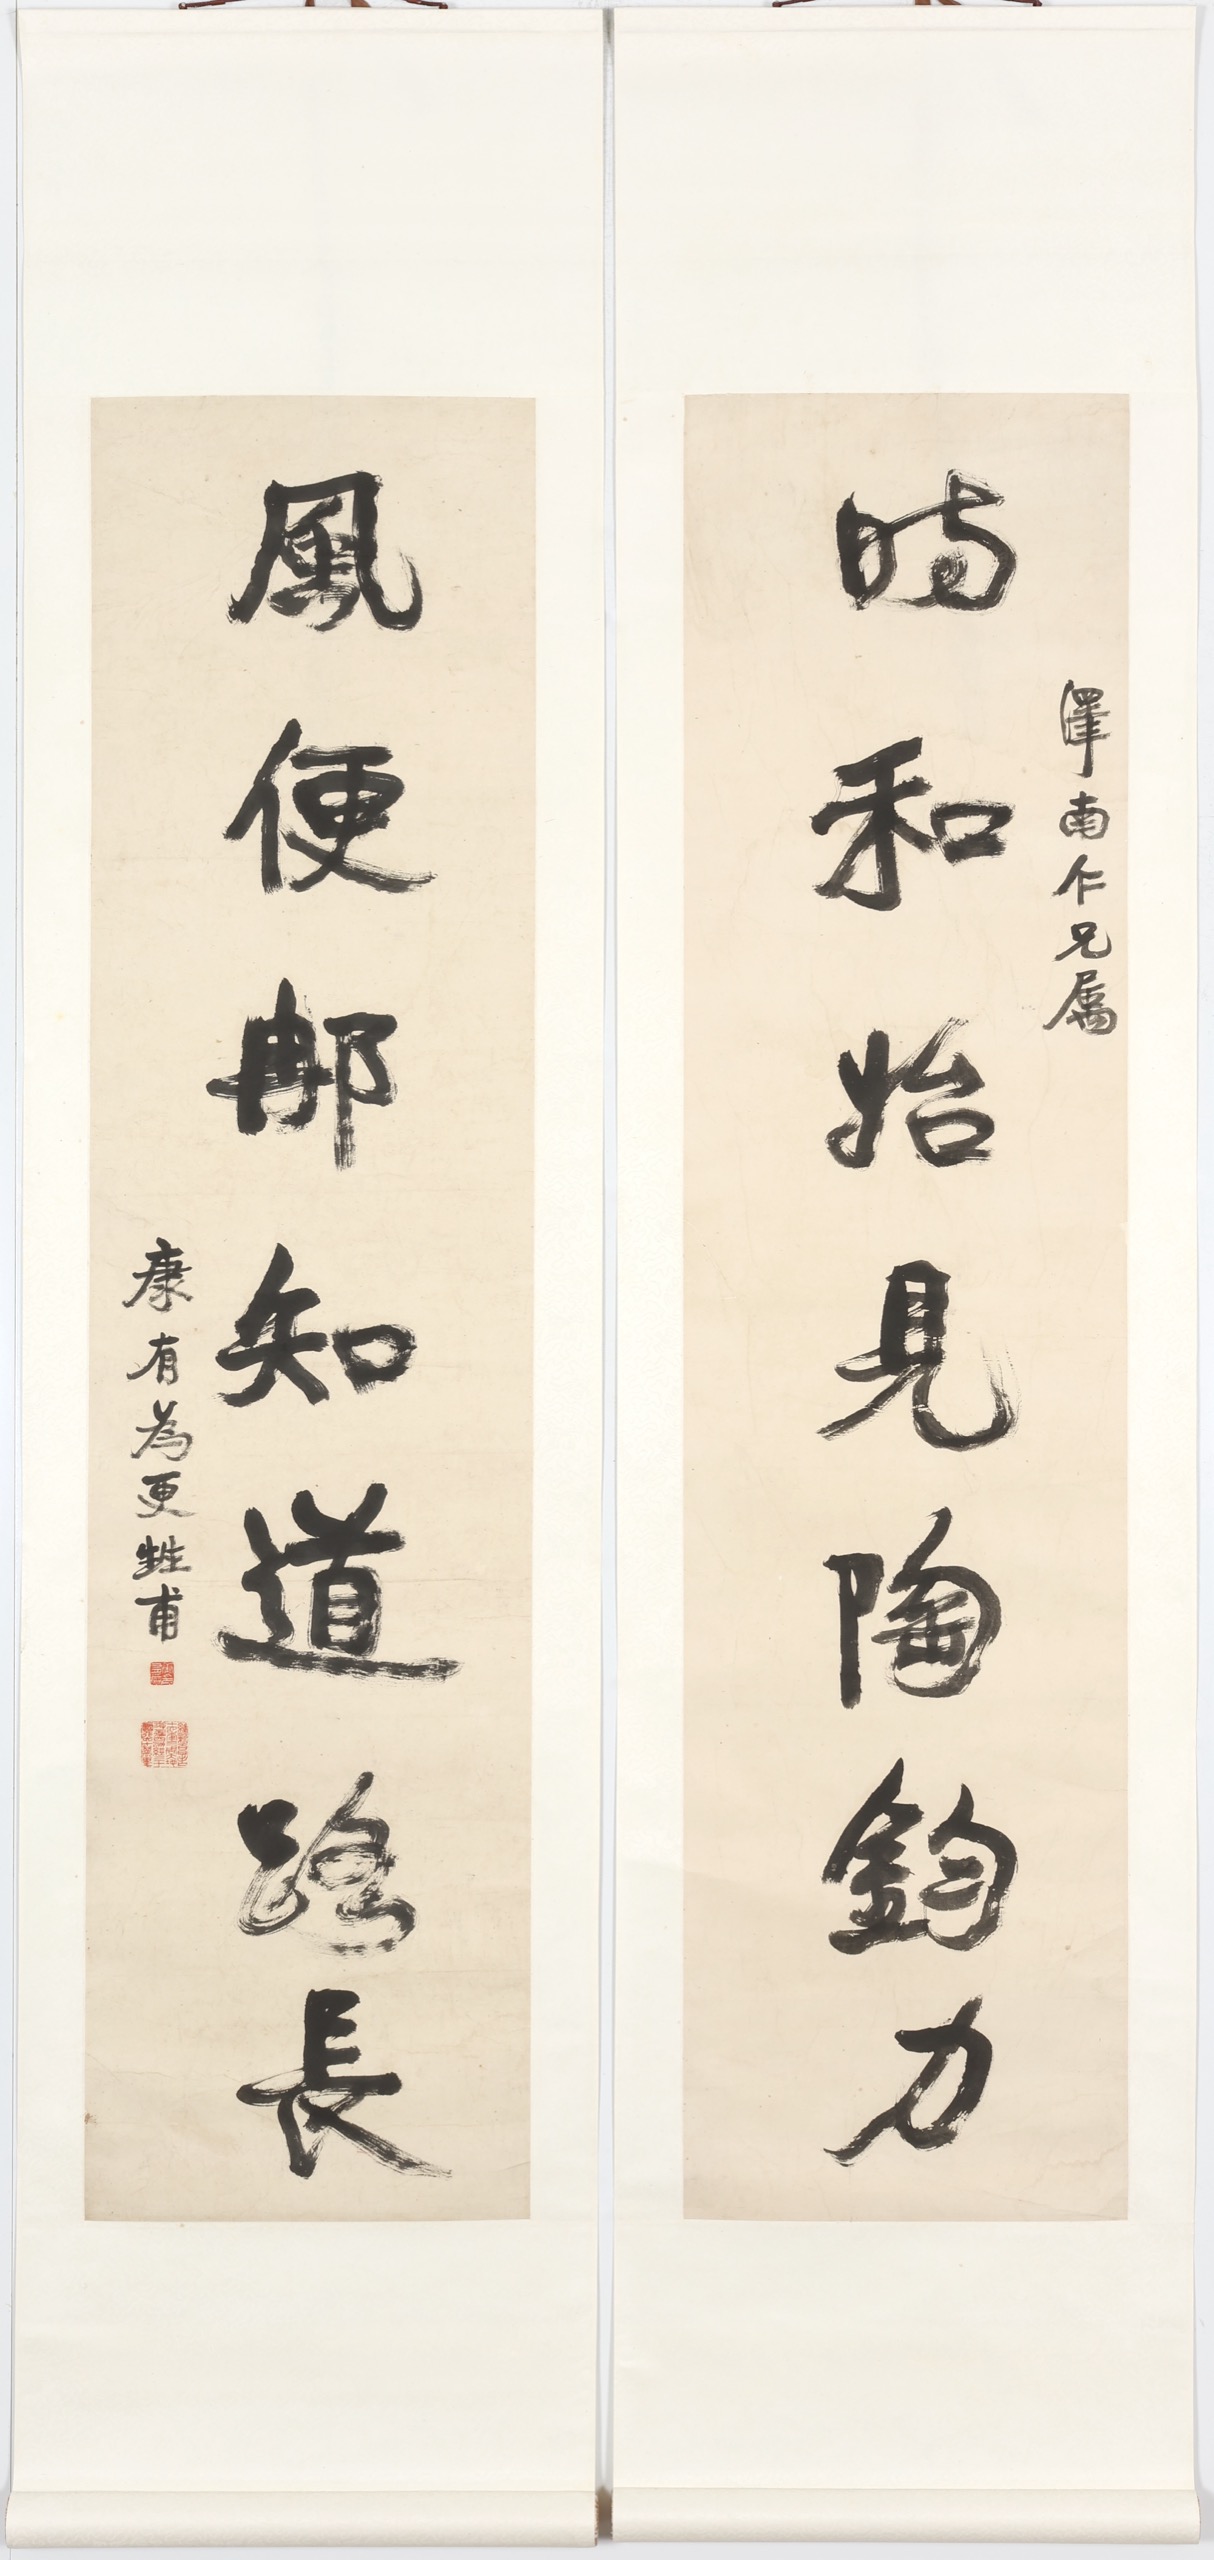 澤南仁兄屬
時和始見陶鈞力
風便那知道路長
康有為更甡甫